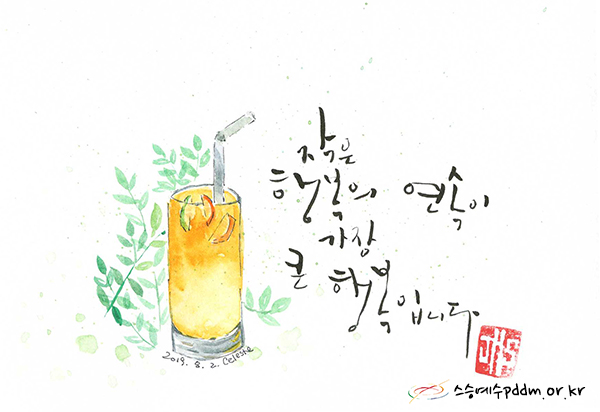 작은
행복의 연속이
가장
큰 행복입니다
2019. 8. 2. Celeste
JHS
스승예수pddm.or.kr